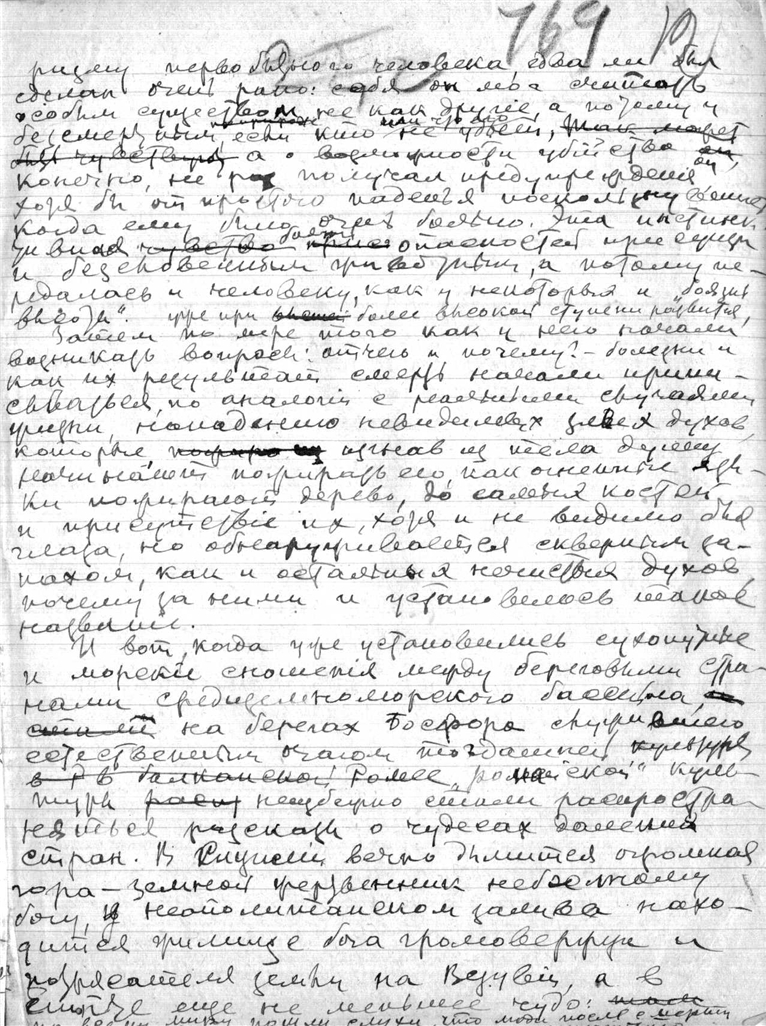 769
ризму первобытного человека, едва ли был
сделан очень рано: себя он мог считать
особым существом, не как другие, а потому и
безсмертным, если кто не убьет, так может
быть чувствует, а о возможности убийства он,
конечно, не раз получал предупреждения
хотя бы от простого паденья
когда ему было очень больно. Эта инстинк
тивная чувство боязнь опасностей присуща
и безсловесным животным, а потому пе-
редалась и человеку, как у некоторых и "боязнь
высоты". уже при более высокой ступени развития,
Затем по мере того как у него начали
возникать вопросы: отчего и почему? – болезни и
как их результат смерть начали припи-
сываться, по аналогии с реальными случаями
жизни, нападению невидимых злых духов,
которые изгнав из тела душу
начинают пожирать его, как огненные язы-
ки пожирают дерево, до самых костей
и присутствие их, хотя и не видимо для
глаза, но обнаруживается скверным за-
пахом, как и остальных нечистых духов,
почему за ними и установилось такое
название.
И вот, когда уже установились сухопутные
и морскіе сношенія между береговыми стра-
нами средиземноморского бассейна,
на берегах Босфора служившего
естественным очагом тогдашней культуры
в балканской Ромее "ромейской" куль-
туры неизбежно стали распростра-
няться разсказы о чудесах далеких
стран. В Сицилии вечно дымится огромная
гора – земной жертвенник небесному
богу, в неаполитанском заливе нахо-
дится жилище бога громовержца и
потрясателя земли на Везувии, а в
Египте еще не меньшее чудо:
по всему миру пошли слухи, что люди после смерти